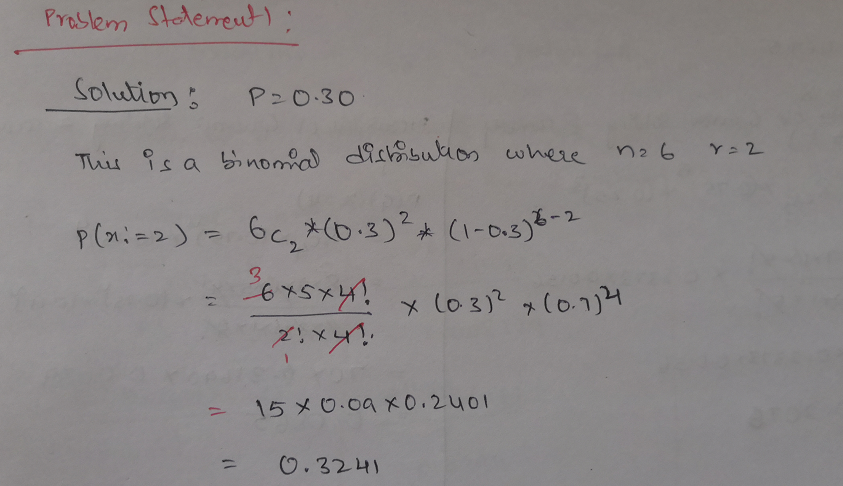 Problem Statement 1 :
Solution : P = 0.30
This is a binomial distribution where n=6 r=2
P(xi=2) = 6c₂ *(0.3)² * (1-0.3)⁶⁻²
= 3 6×5×4! / 2! × 4! 1 × (0.3)² × (0.7)⁴
= 15 × 0.09 × 0.2401
= 0.3241